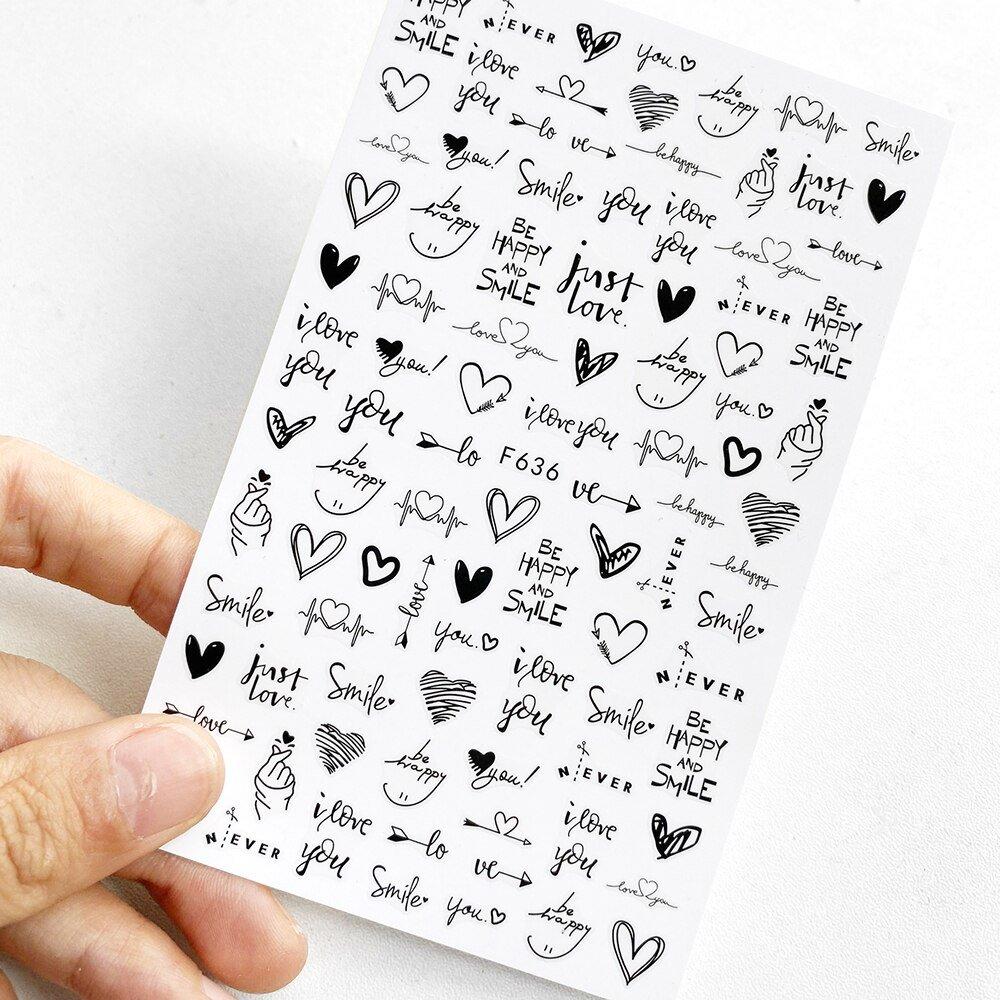 HAPPY
AND
SMILE
N EVER
you.
i love
you
be
happy
Smile
lo ve
love you
you!
be happy
just
love.
Smile
you
i love
you
be
happy
BE
HAPPY
AND
SMILE
just
love.
love you
love
N EVER
BE
HAPPY
AND
SMILE
i love
you
you!
love you
be
happy
you.
you
i love you
lo
F636
ve
be happy
be
happy
BE
HAPPY
AND
SMILE
N EVER
be happy
Smile
love
you.
Smile
just
love.
Smile
i love
you
Smile
N EVER
BE
HAPPY
AND
SMILE
love
be
happy
you!
N EVER
N EVER
i love
you
lo
ve
i love
you
love you
Smile
you.
be
happy